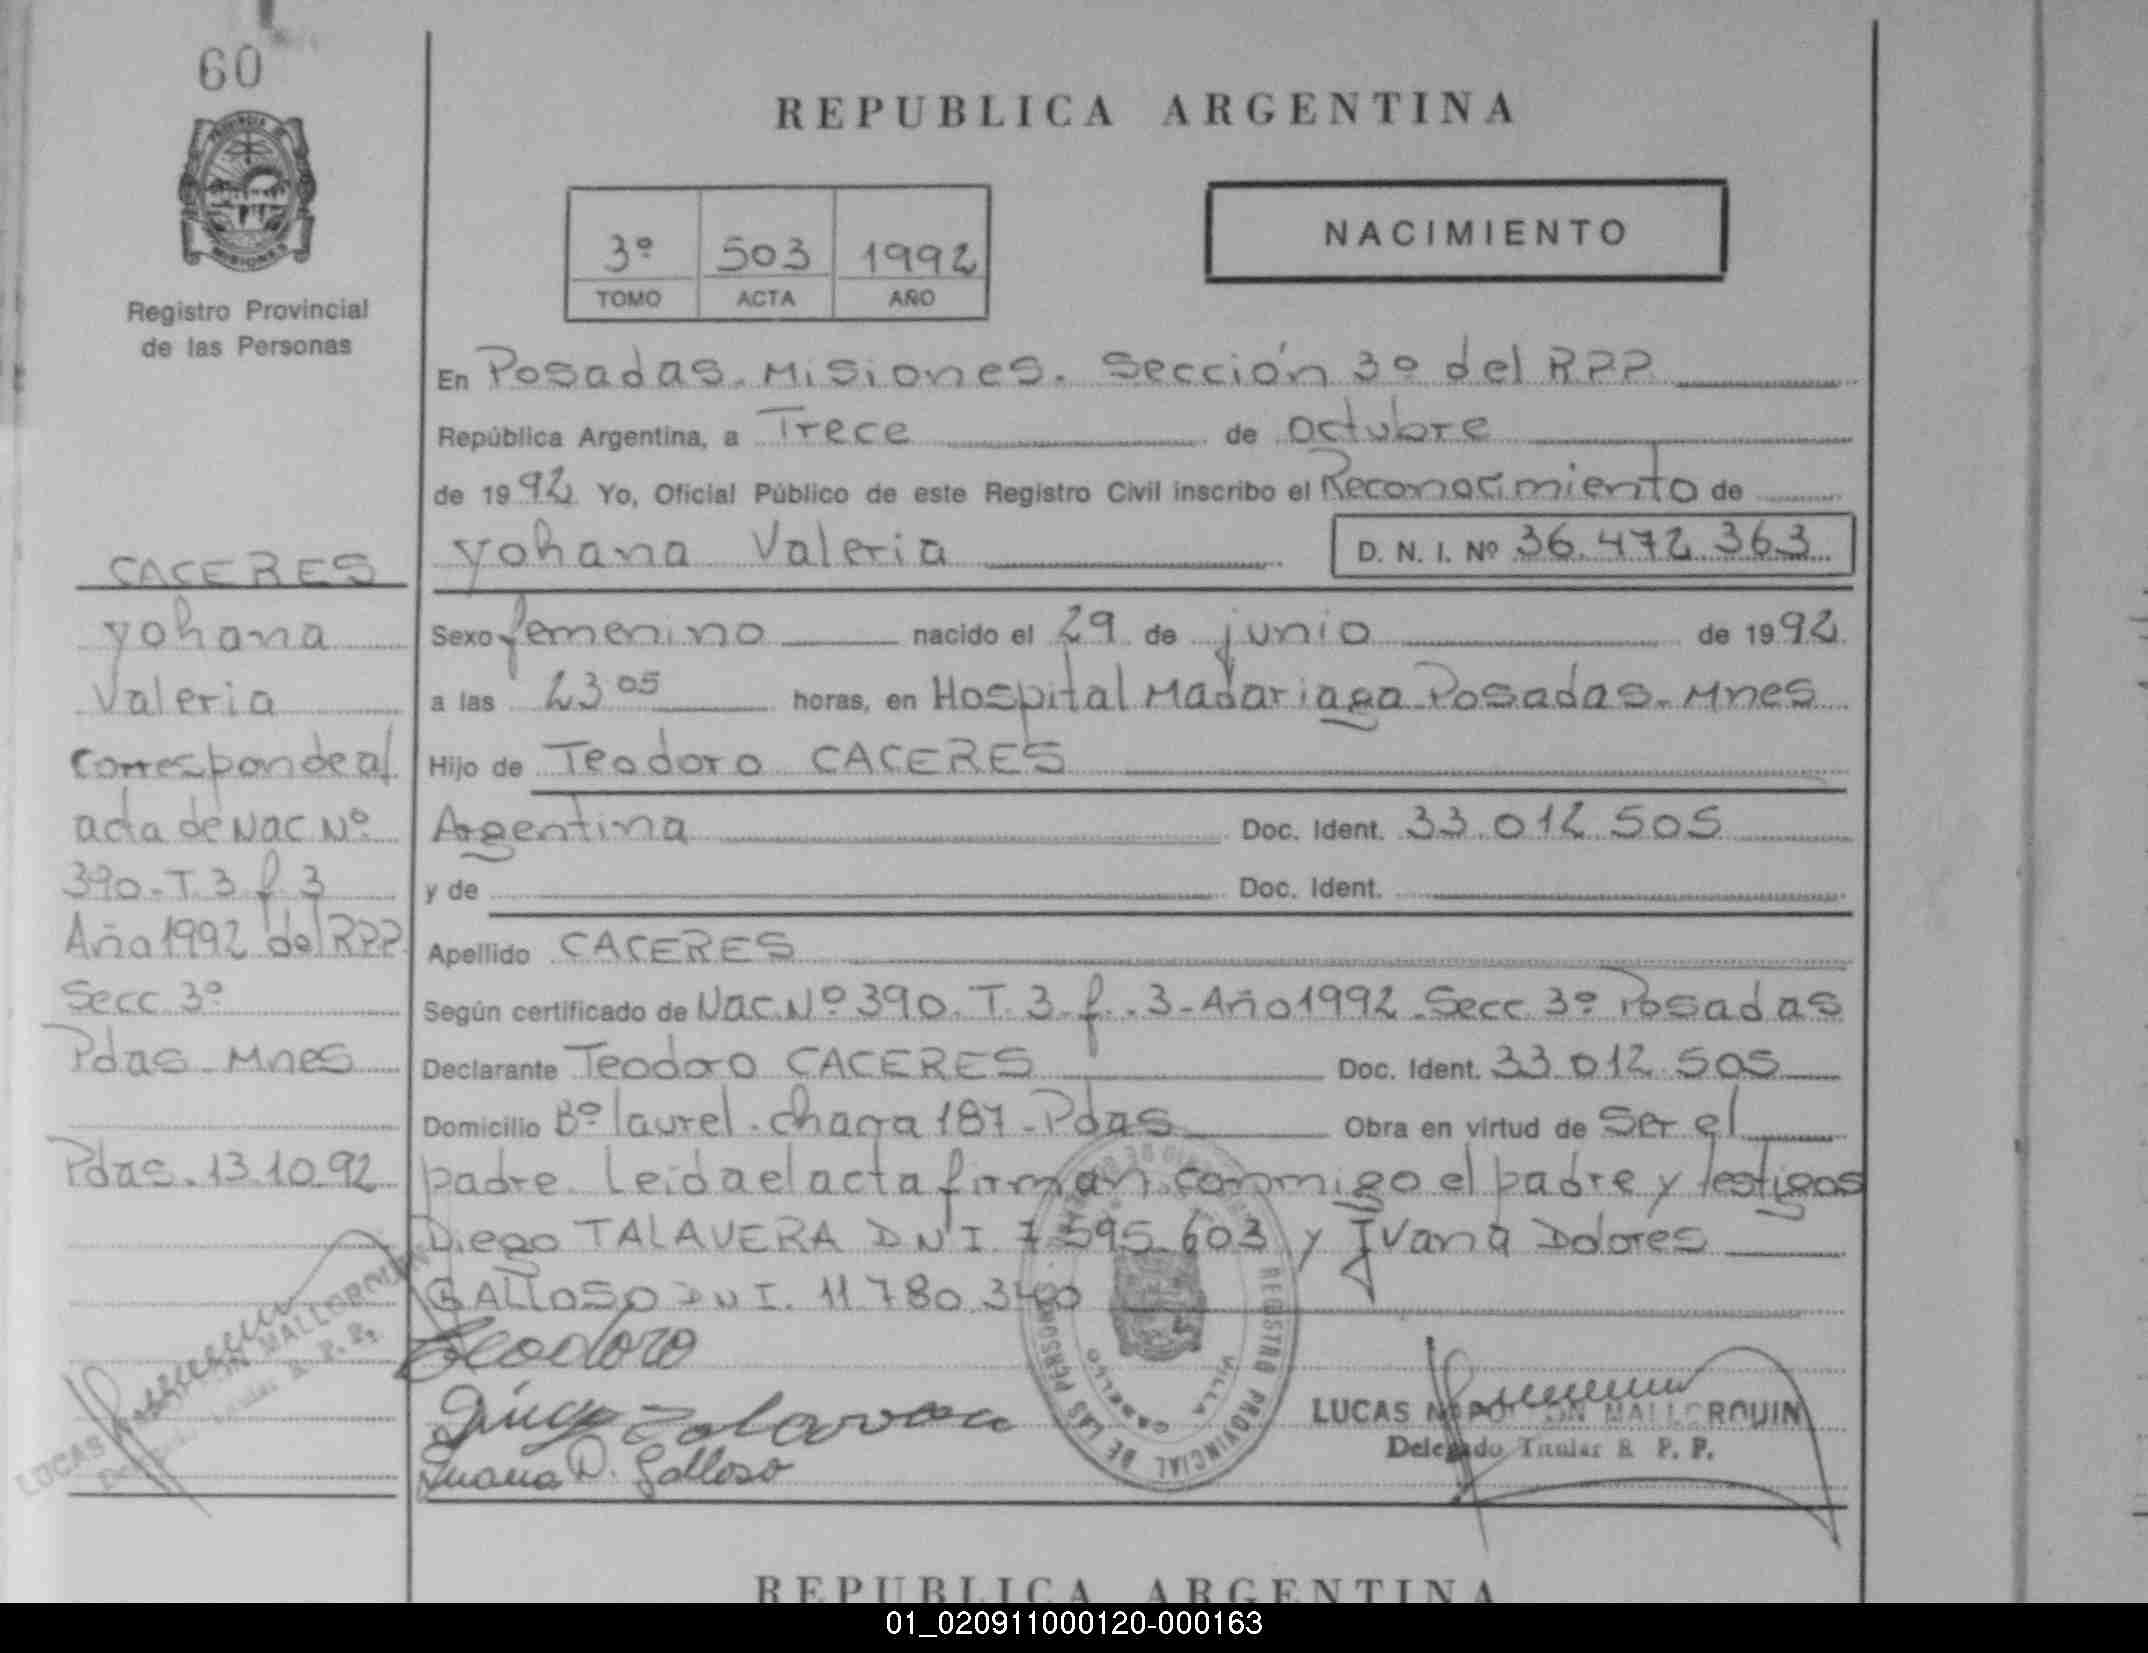 60
PROVINCIA DE
MISIONES
Registro Provincial
de las Personas
CACERES
yohana
Valeria
Corresponde al
acta de Nac Nº
390-T.3 f.3
Año 1992 del RPP
Secc 3º
Pdas - Mnes
Pdas. 13.10.92
LUCAS MALLORQUIN
REPUBLICA ARGENTINA
3º 503 1992
TOMO ACTA AÑO
NACIMIENTO
En Posadas. Misiones. Sección 3º del RPP
República Argentina, a Trece de octubre
de 1992 Yo, Oficial Público de este Registro Civil inscribo el Reconocimiento de
yohana Valeria D. N. I. Nº 36.472.363
Sexo femenino nacido el 29 de junio de 1992
a las 23 05 horas, en Hospital Madariaga Posadas. Mnes
Hijo de Teodoro CACERES
Argentina Doc. Ident. 33.012.505
y de Doc. Ident.
Apellido CACERES
Según certificado de Nac. Nº 390. T. 3. f. 3 - Año 1992. Secc. 3º Posadas
Declarante Teodoro CACERES Doc. Ident. 33.012.505
Domicilio Bº laurel. chacra 187 - Pdas Obra en virtud de ser el
padre. Leida el acta firman conmigo el padre y testigos
Diego TALAVERA D N I 7 595 603 y Ivana Dolores
GALLOSO D N I. 11.780.
Teodoro
Diego Talavera
D. Galloso
REGISTRO PROVINCIAL DE LAS PERSONAS
VILLA CABELLO
LUCAS NAPOLEON MALLORQUIN
Delegado Titular R. P. P.
REPUBLICA ARGENTINA
01_020911000120-000163